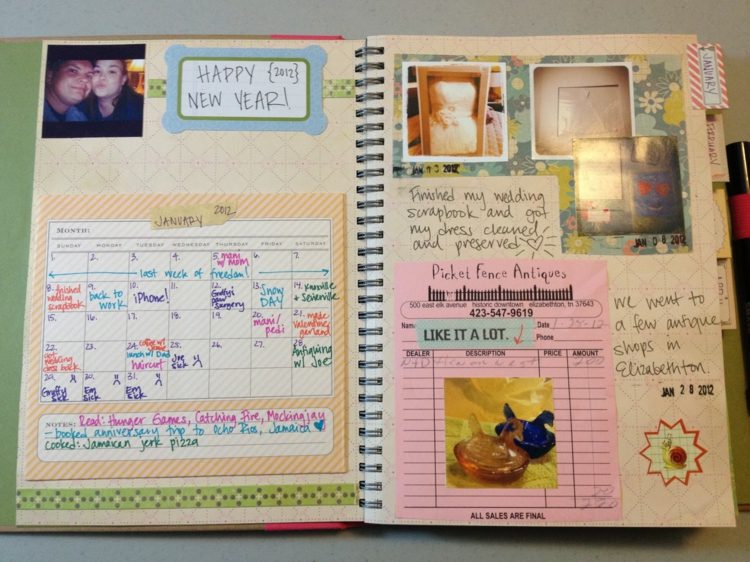 HAPPY {2012}
NEW YEAR!
JANUARY 2012
MONTH:
SUNDAY MONDAY TUESDAY WEDNESDAY THURSDAY FRIDAY SATURDAY
1. 2. 3. 4. 5. mani w/ mom 6. 7.
last week of freedom!
8. finished wedding scrapbook 9. back to work 10. iPhone! 11. 12. Graffy's surgery 13. SNOW DAY 14. Knoxville + Sevierville
15. 16. 17. 18. 19. 20. mani/pedi 21. made Valentine garland
22. got wedding dress back 23. 24. coffee w/ lunch w/ Dad haircut 25. Joe sick 26. 27. 28. Antiquing w/ Joe
29. Graffy sick 30. Em sick 31. Em sick
NOTES: Read: Hunger Games, Catching Fire, Mockingjay
- booked anniversary trip to Ocho Rios, Jamaica
cooked: Jamaican jerk pizza
JANUARY
FEBRUARY
2012
JAN 0 6 2012
Finished my wedding
scrapbook and got
my dress cleaned
and preserved
Picket Fence Antiques
500 east elk avenue historic downtown elizabethton, tn 37643
423-547-9619
Name Date
LIKE IT A LOT.
Phone
DEALER DESCRIPTION PRICE AMOUNT
ALL SALES ARE FINAL
we went to
a few antique
shops in
Elizabethton.
JAN 2 8 2012